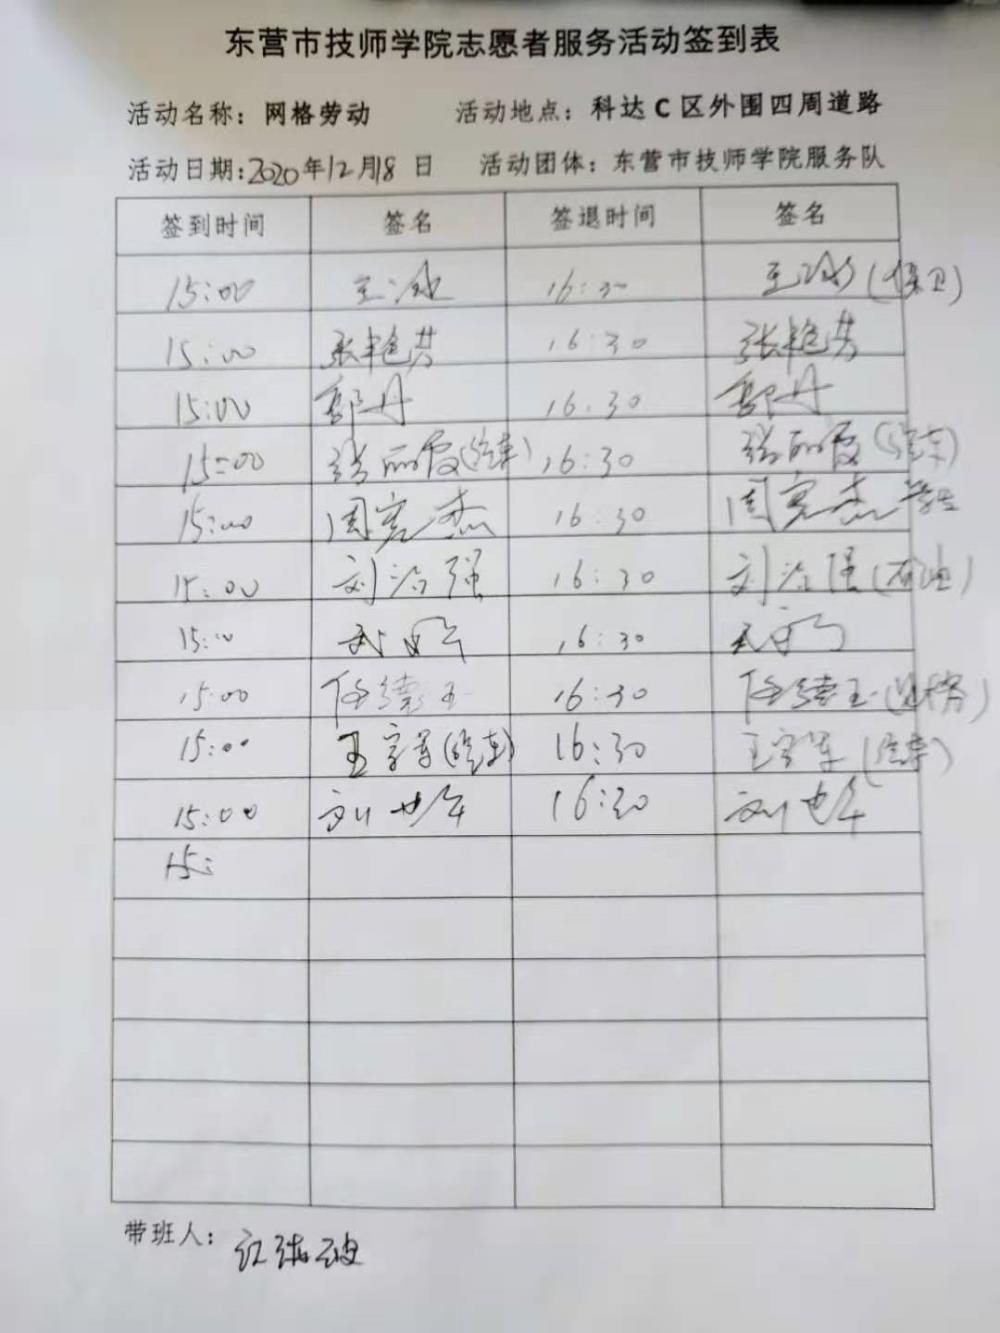 东营市技师学院志愿者服务活动签到表
活动名称：网格劳动 活动地点：科达C区外围四周道路
活动日期:2020年12月18日 活动团体：东营市技师学院服务队
签到时间 签名 签退时间 签名
15:00 王冰 16:30 王冰(保卫)
15:00 张艳芸 16:30 张艳芸
15:00 郭丹 16:30 郭丹
15:00 张丽霞(汽车) 16:30 张丽霞(汽车)
15:00 周宪杰 16:30 周宪杰
15:00 刘治强 16:30 刘治强(石油)
15:00 武 16:30 武
15:00 任德玉 16:30 任德玉
15:00 王字军(汽车) 16:30 王字军(汽车)
15:00 刘世华 16:30 刘世华
15:
带班人：